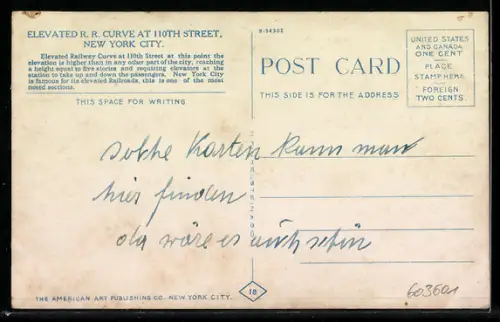 ELEVATED R. R. CURVE AT 110TH STREET,
NEW YORK CITY.
Elevated Railway Curve at 110th Street at this point the
elevation is higher than in any other part of the city, reaching
a height equal to five stories and requiring elevators at the
station to take up and down the passengers. New York City
is famous for its elevated Railroads, this is one of the most
noted sections.
THIS SPACE FOR WRITING
POST CARD
THIS SIDE IS FOR THE ADDRESS
UNITED STATES
AND CANADA
ONE CENT
PLACE
STAMP HERE
FOREIGN
TWO CENTS.
solche Karten kann man
hier finden
da wäre es auch schön
603601
18
THE AMERICAN ART PUBLISHING CO. NEW YORK CITY.